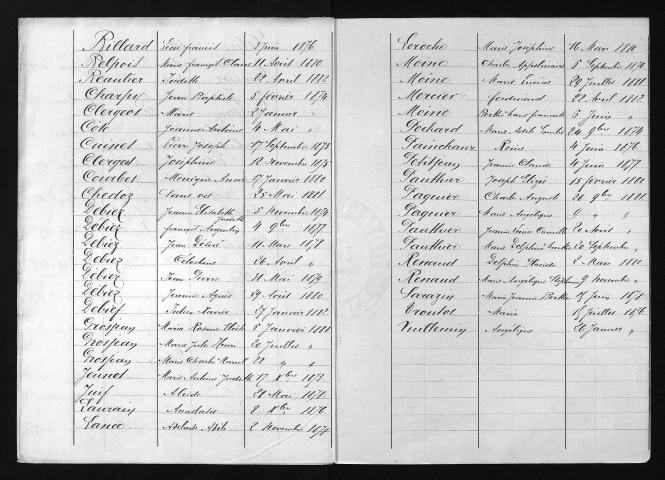 Billard Léon francis 3 Juin 1876
Belpois Marie françois Claire 11 Août 1880
Beautier Judith 22 Avril 1882
Charpy Jean Baptiste 5 février 1874
Clergeot Marie 2 Janvier "
Côte Jeanne Antoine 4 Mai "
Cuinet Pierre Joseph 17 Septembre 1873
Clerget Joséphine 12 Novembre 1875
Courbet Monique Anne 17 Janvier 1880
Chedoz Sans vie 25 Mai 1881
Debiez Jeanne Elisabeth Judith 5 Novembre 1874
Debiez françois 4 9bre 1877
Debiez Jean Désiré 11 Mars 1878
Debiez Célestine 26 Avril "
Debiez Jean Pierre 31 Mai 1879
Debiez Jeanne Agnès 29 Août 1880
Debief Julien Xavier 27 Janvier 1882
Grosjean Marie Rosine 8 Janvier 1881
Grosjean Marie Jules Henri 20 Juillet "
Grosjean Marie Charles 22 " "
Jeunet Marie Antoine Joseph 17 Xbre 1873
Juif Aleide 21 Mai 1876
Laurain Anastasie 2 Xbre 1876
Lance Adelaide Adèle 2 Novembre 1878
Laroche Marie Joséphine 16 Mars 1880
Moine Charles Appolinaire 5 Septembre 1876
Moine Marie 29 Juillet 1881
Mercier ferdinand 22 Avril 1882
Moine 5 Juin "
Pochard Marie Adèle 24 9bre 1874
Painchaux Reine 4 Juin 1876
Petitjean Jeanne Claude 4 Juin 1877
Pauthier Joseph 13 février 1880
Paguier Charles Auguste 26 9bre 1881
Paguier Marie Angélique 9 " "
Pauthier 20 Août "
Pauthier Marie Delphine 20 Septembre "
Renaud Delphin 2 Mars 1880
Renaud Marie Angélique 9 Novembre "
Sarazin Marie Jeanne 27 Juin 1878
Troutot Maria 15 Juillet 1876
Vuillemin Angélique 26 Janvier "